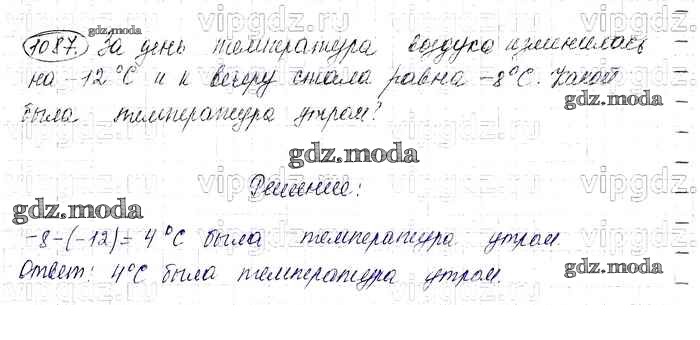 1087. За день температура воздуха изменилась
на -12°С и к вечеру стала равна -8°С. Какой
была температура утром?
Решение:
-8-(-12)=4°С была температура утром.
Ответ: 4°С была температура утром.
gdz.moda
gdz.moda
gdz.moda
gdz.moda
gdz.moda
vipgdz.
vipgdz.
vipgdz.